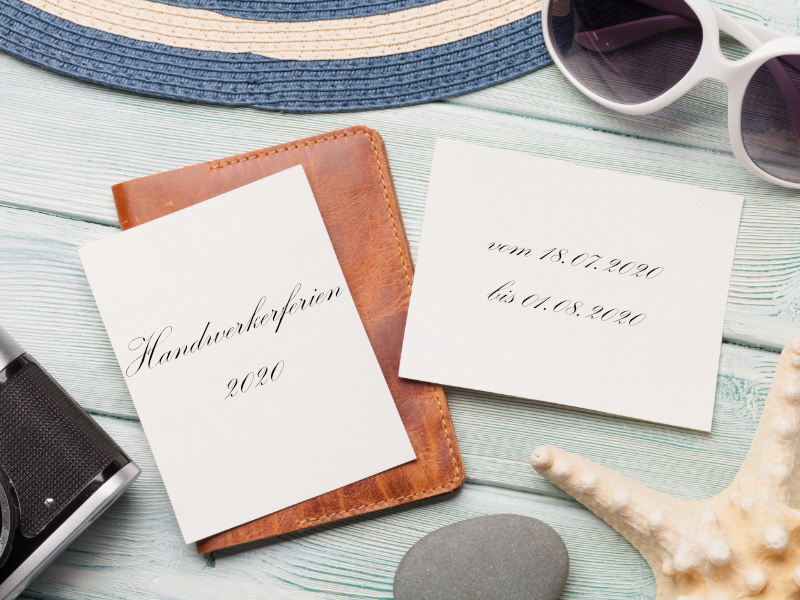 Handwerkerferien
2020
vom 18.07.2020
bis 01.08.2020